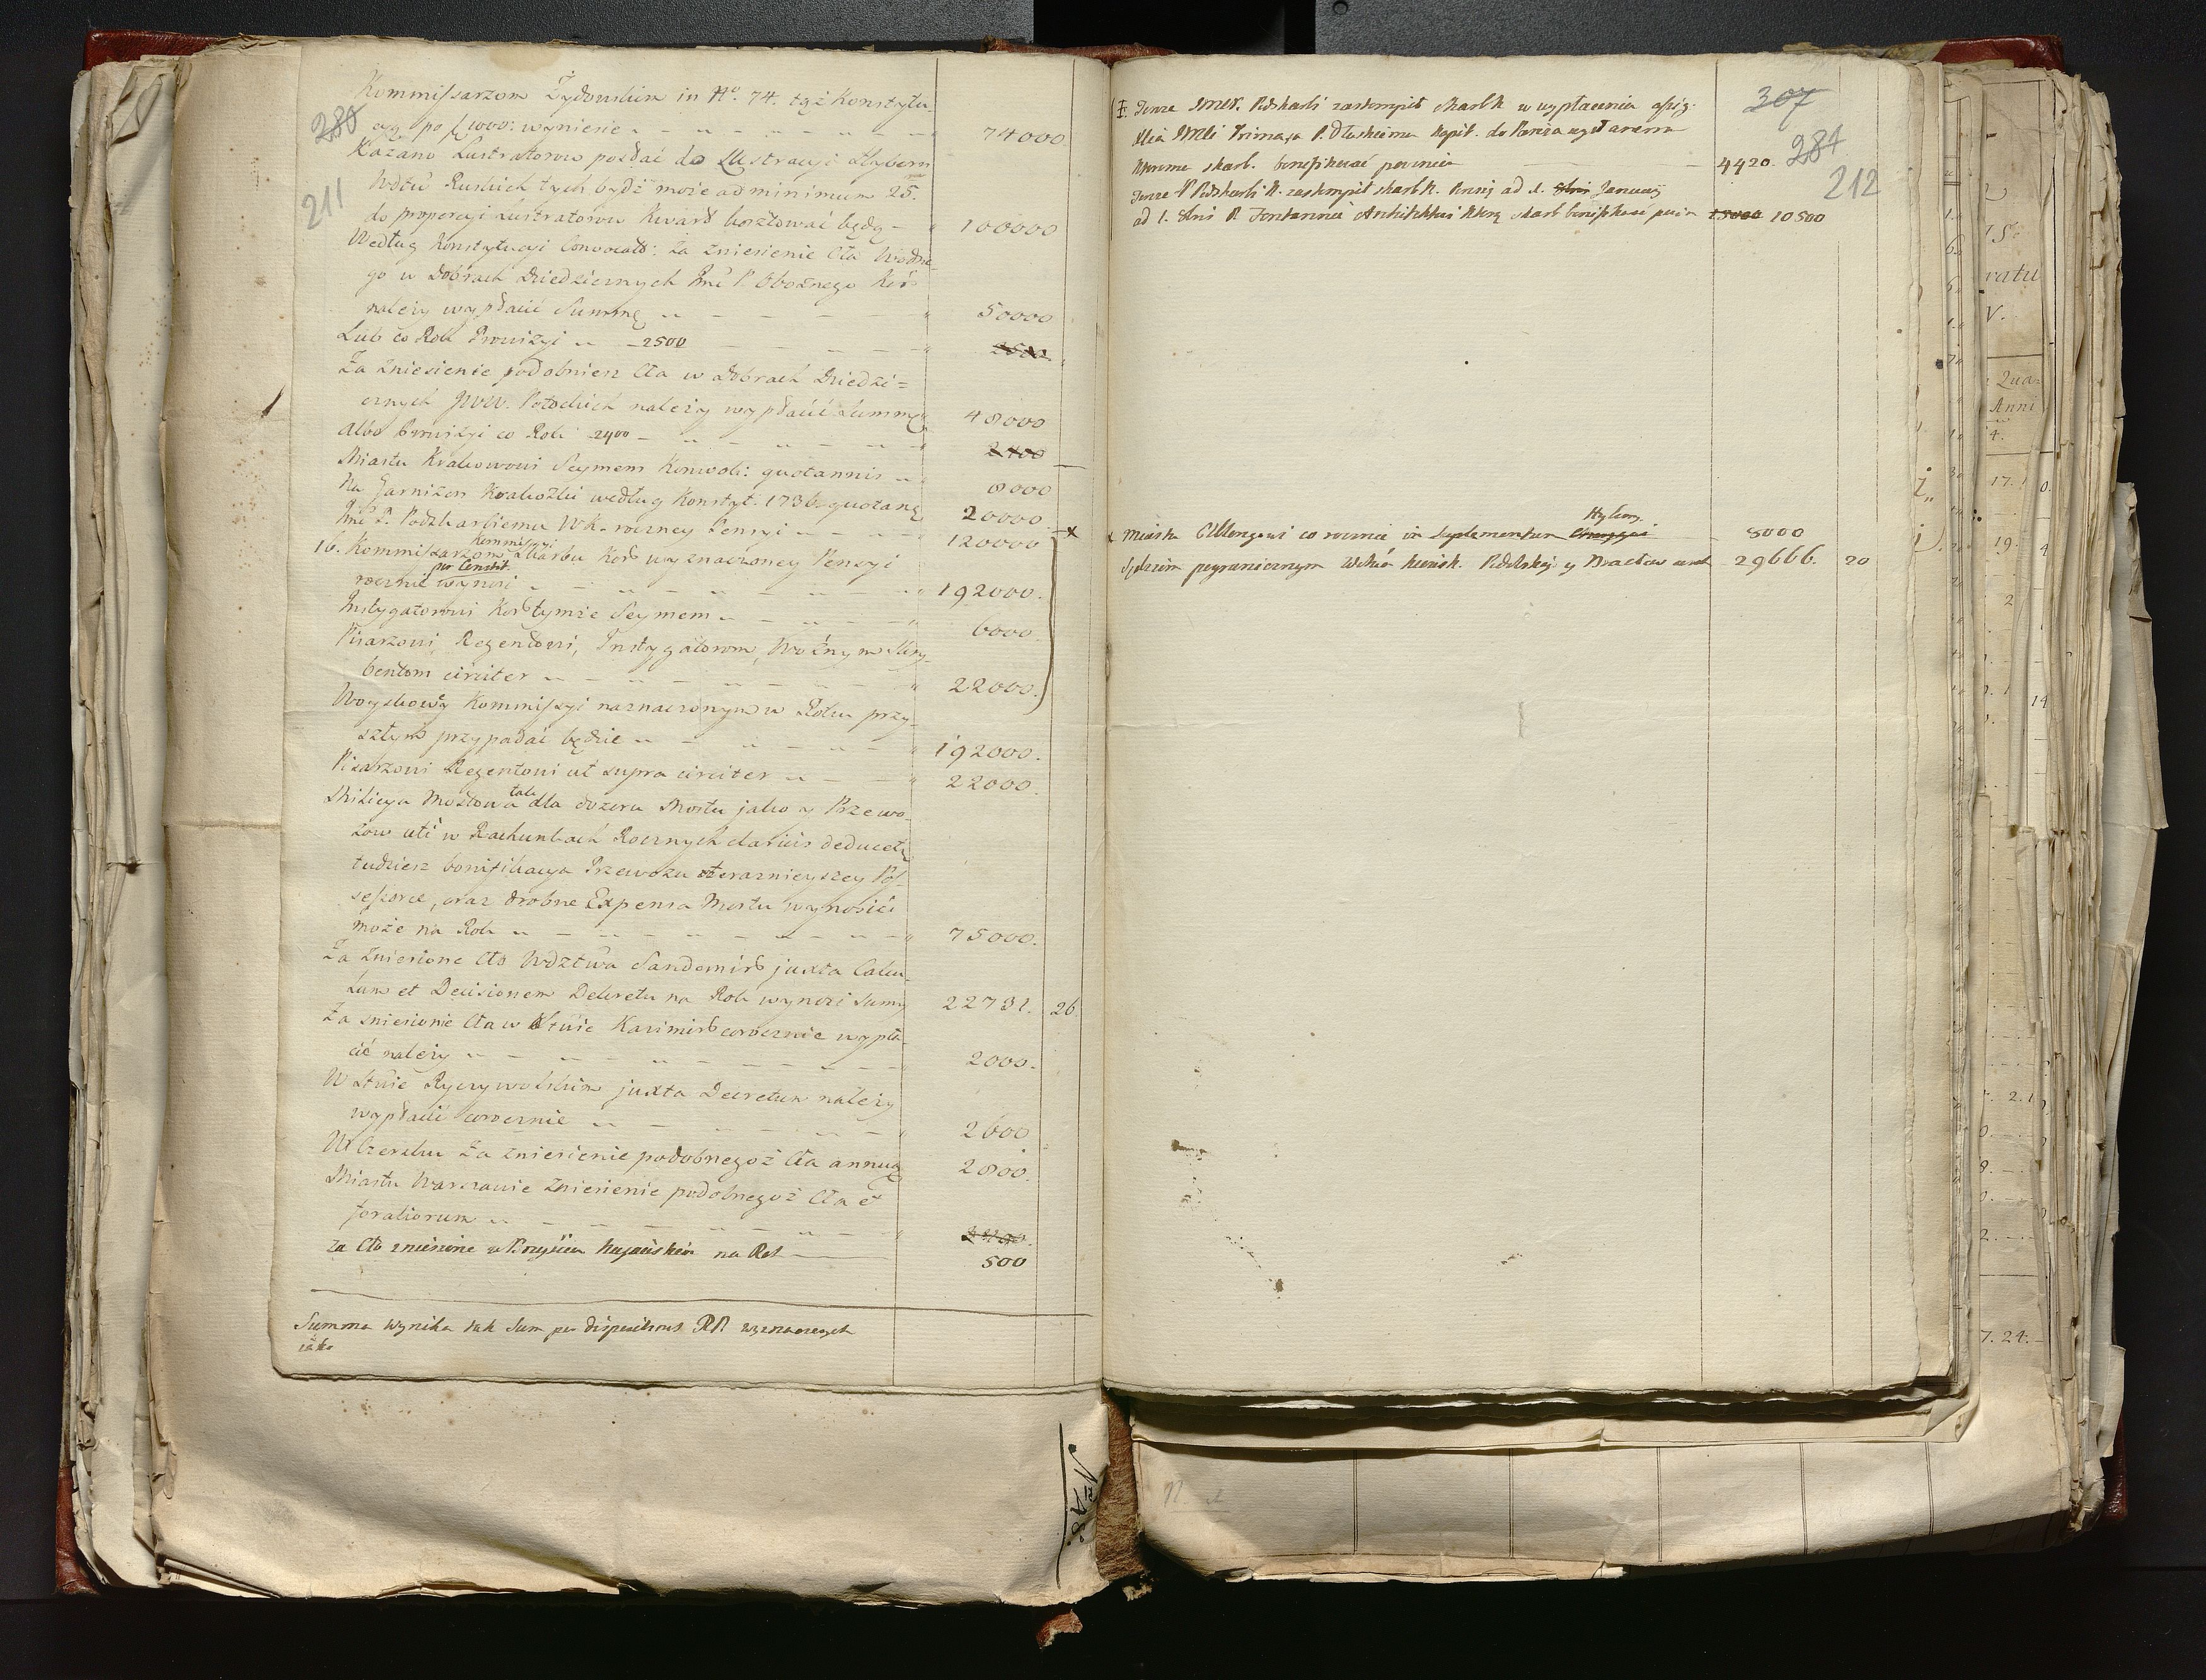 280
211
Kommissarzom Żydowskim in No. 74. tąż Konstytu-
cyą po f 1000: wyniesie 74000
Kazano Lustratorow posłać do Lustracyi Hybern
Wdztw Ruskich tych bydź może ad minimum 25.
do proporcyi Lustratorow Kward kosztować będą 100000
Według Konstytucyi Convocat: za zniesienie Cła Wodne-
go w Dobrach Dziedzicznych Jmć P. Oboźnego Kor
należy wypłacić Summę 50000
Lub co Rok Prowizyi 2500 2500
Za zniesienie podobnież Cła w Dobrach Dziedzi=
cznych JWW. Potockich należy wypłacić Summę 48000
Albo Prowizyi co Rok 2400 2400
Miastu Krakowowi Seymem Konwok: quotannis 8000
Na Garnizon Krakowski według Konstyt. 1736. quotan 20000
Jmć P. Podskarbiemu W K. roczney Pensyi 120000
Kommissyi
16. Kommissarzom Skarbu Kor wyznaczoney Pensyi
per Constit.
rocznie wynosi 192000.
Instygatorowi Kor tymże Seymem 6000.
Pisarzowi, Regentowi, Instygatorom, Woźnym Skry-
bentom circiter 22000.
Woyskowy Kommissyi naznaczonym w Roku przy-
szłym przypadać będzie 192000.
Pisarzowi Regentowi ut supra circiter 22000.
Milicya Mostowa tak dla dozoru Mostu jako y Przewo-
zow uti w Rachunkach Rocznych clarius deducetur
tudzież bonifikacya Przewozu teraznieyszey Pos-
sessorce, oraz drobne Expensa Mostu wynosić
może na Rok 75000.
Za zniesione Cło Wdztwa Sandomir juxta Calcu-
lum et Decisionem Dekretu na Rok wynosi Sumy 22731. 26.
Za zniesienie Cła w Stwie Kazimir corocznie wypła-
cić należy 2000.
W Stwie Ryczywolskim juxta Decretum należy
wypłacić corocznie 2600
W Czersku za zniesienie podobnegoż Cła annua 2800.
Miastu Warszawie zniesienie podobnegoż Cła et
foraliorum
za Cło zniesione w Brześciu Kujawskim na Rok 500
Summa wynika tak Sum per dispositiones RP. wyznaczonych
iako
307
284
212
Tenze Jmsć. Podskarbi zastompił skarb K w wypłaceniu assig-
P. Dłuskiemu Kapit. do Paryża wysłanemu
Ktoreme skarb. bonifikować powinien 4420.
Tenze P Podskarbi K. zastompił skarb K. Pensij ad d. 1bris January
ad 1. 8bris P. Fontannie Architektowi Którą skarb bonifikować powin 15000 10500
x Miastu Elblongowi co rocznie in suplementum Hybern. 8000
Sędziom pogranicznym Wdztw Kiiowsk. Podolskiej y Bracław 29666. 20
No 78.